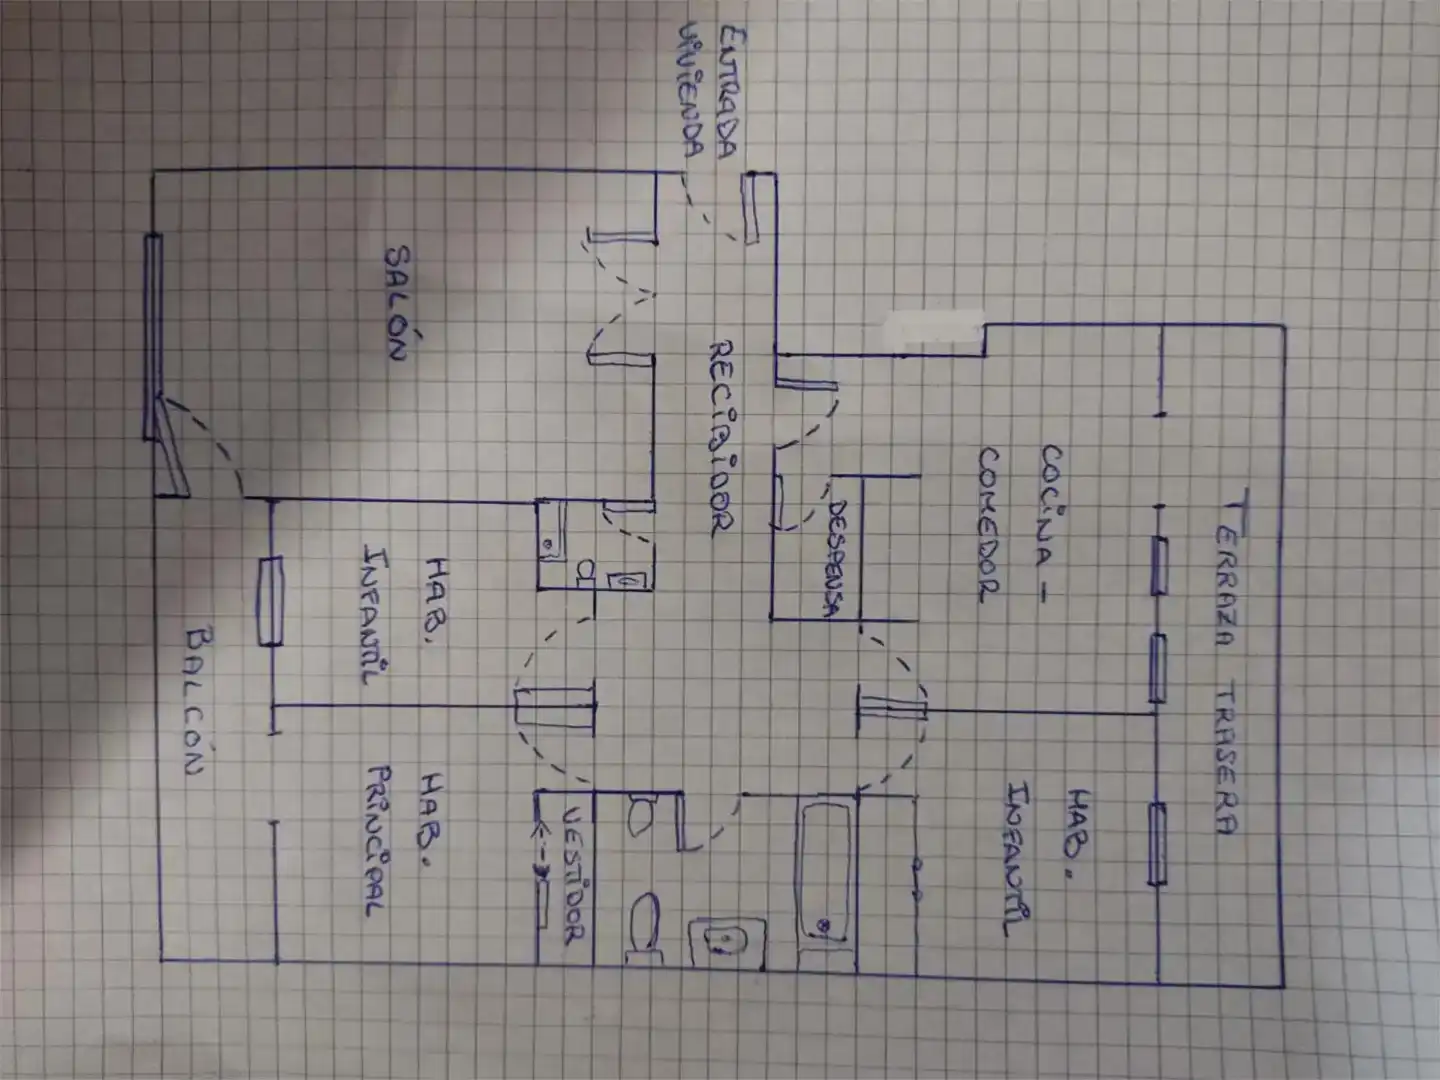 ENTRADA
VIVIENDA
SALÓN
RECIBIDOR
COCINA -
COMEDOR
DESPENSA
TERRAZA TRASERA
HAB.
INFANTIL
BALCÓN
HAB.
PRINCIPAL
VESTIDOR
HAB.
INFANTIL